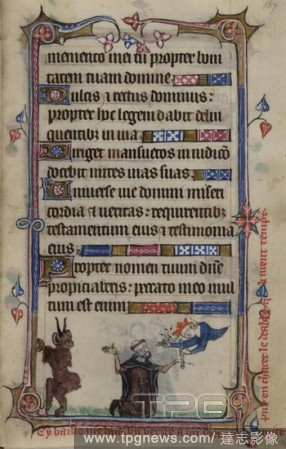 memento mei tu propter boni
tatem tuam domine.
Dulcis et rectus dominus:
propter hoc legem dabit delin
quentibus in via.
Diriget mansuetos in iudicio
docebit mites vias suas.
Universe vie domini miseri
cordia et veritas: requirentibus
testamentum eius et testimonia
eius.
Propter nomen tuum dñe
propiciaberis: peccato meo mul
tum est enim.
TPG
www.tpgnews.com / 達志影像